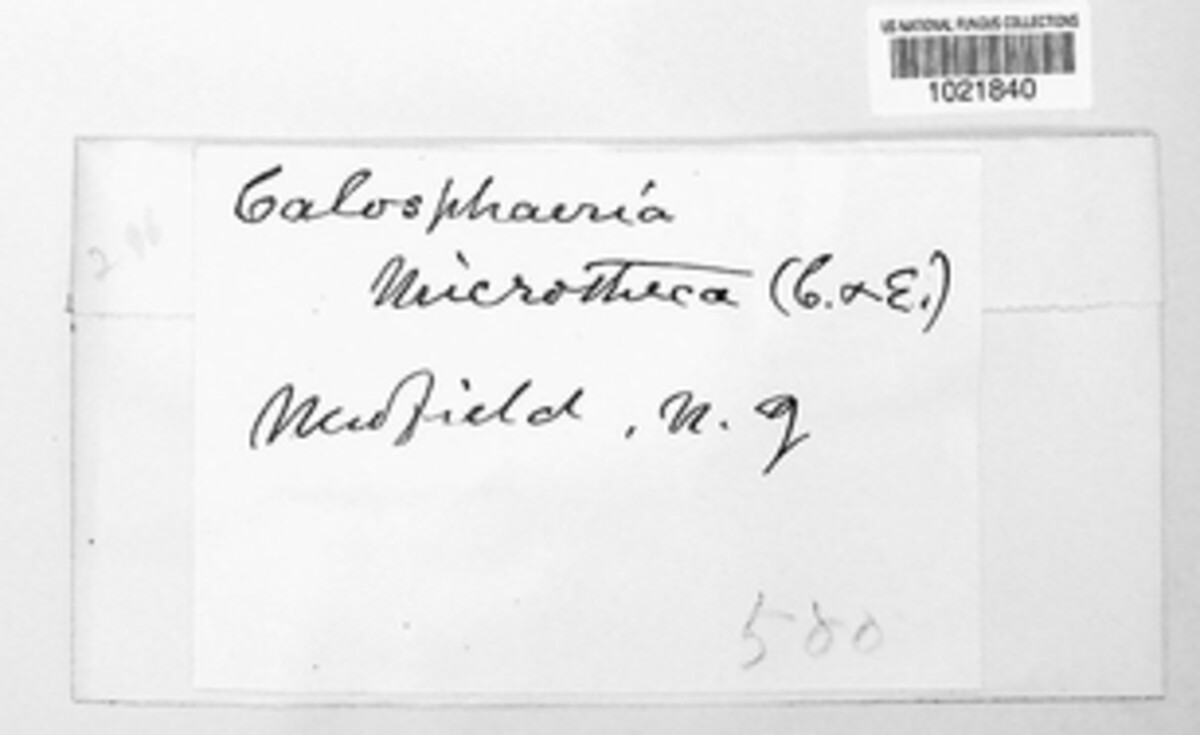 US NATIONAL FUNGUS COLLECTIONS
1021840
Calosphaeria
microtheca (C. & E.)
Newfield, N. J
500